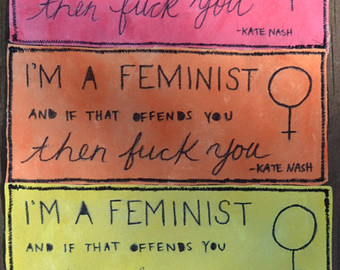 then fuck you
-KATE NASH
I'M A FEMINIST
AND IF THAT OFFENDS YOU
then fuck you
-KATE NASH
I'M A FEMINIST
AND IF THAT OFFENDS YOU